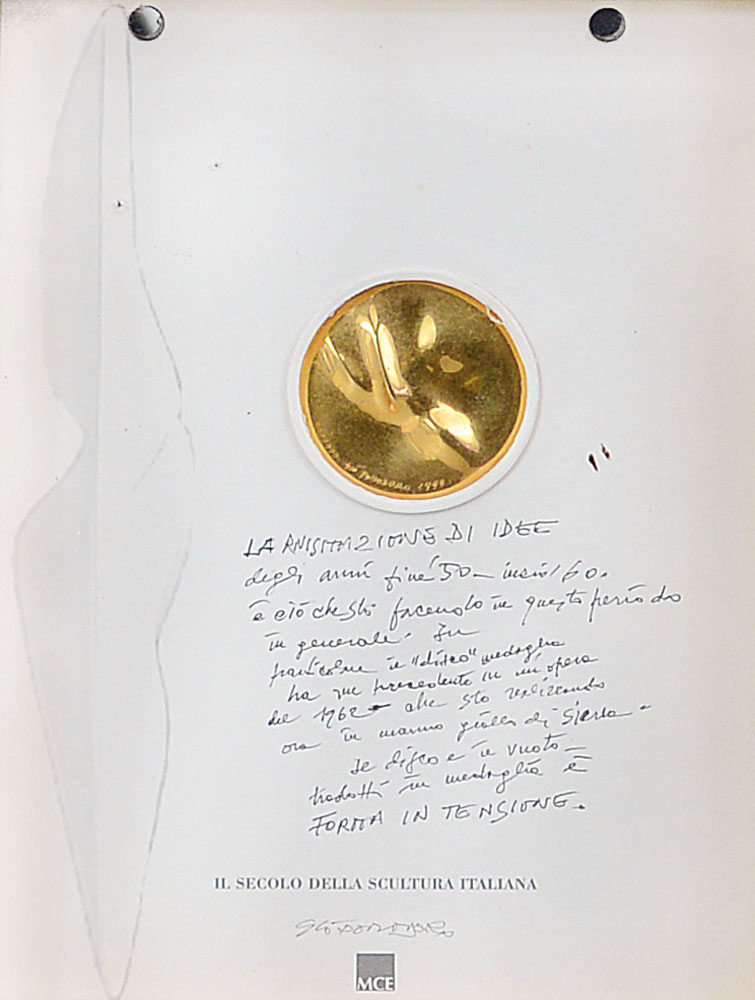 1999
LA RIVISITAZIONE DI IDEE
degli anni fine '50 - inizio '60.
è ciò che sto facendo in questo periodo
in generale. In
particolare il "disco" medaglia
ha un precedente in un'opera
del 1962 - che sto realizzando
ora in marmo giallo di Siena -
Il disco e il vuoto -
tradotti in medaglia è
FORMA IN TENSIONE.
IL SECOLO DELLA SCULTURA ITALIANA
MCE